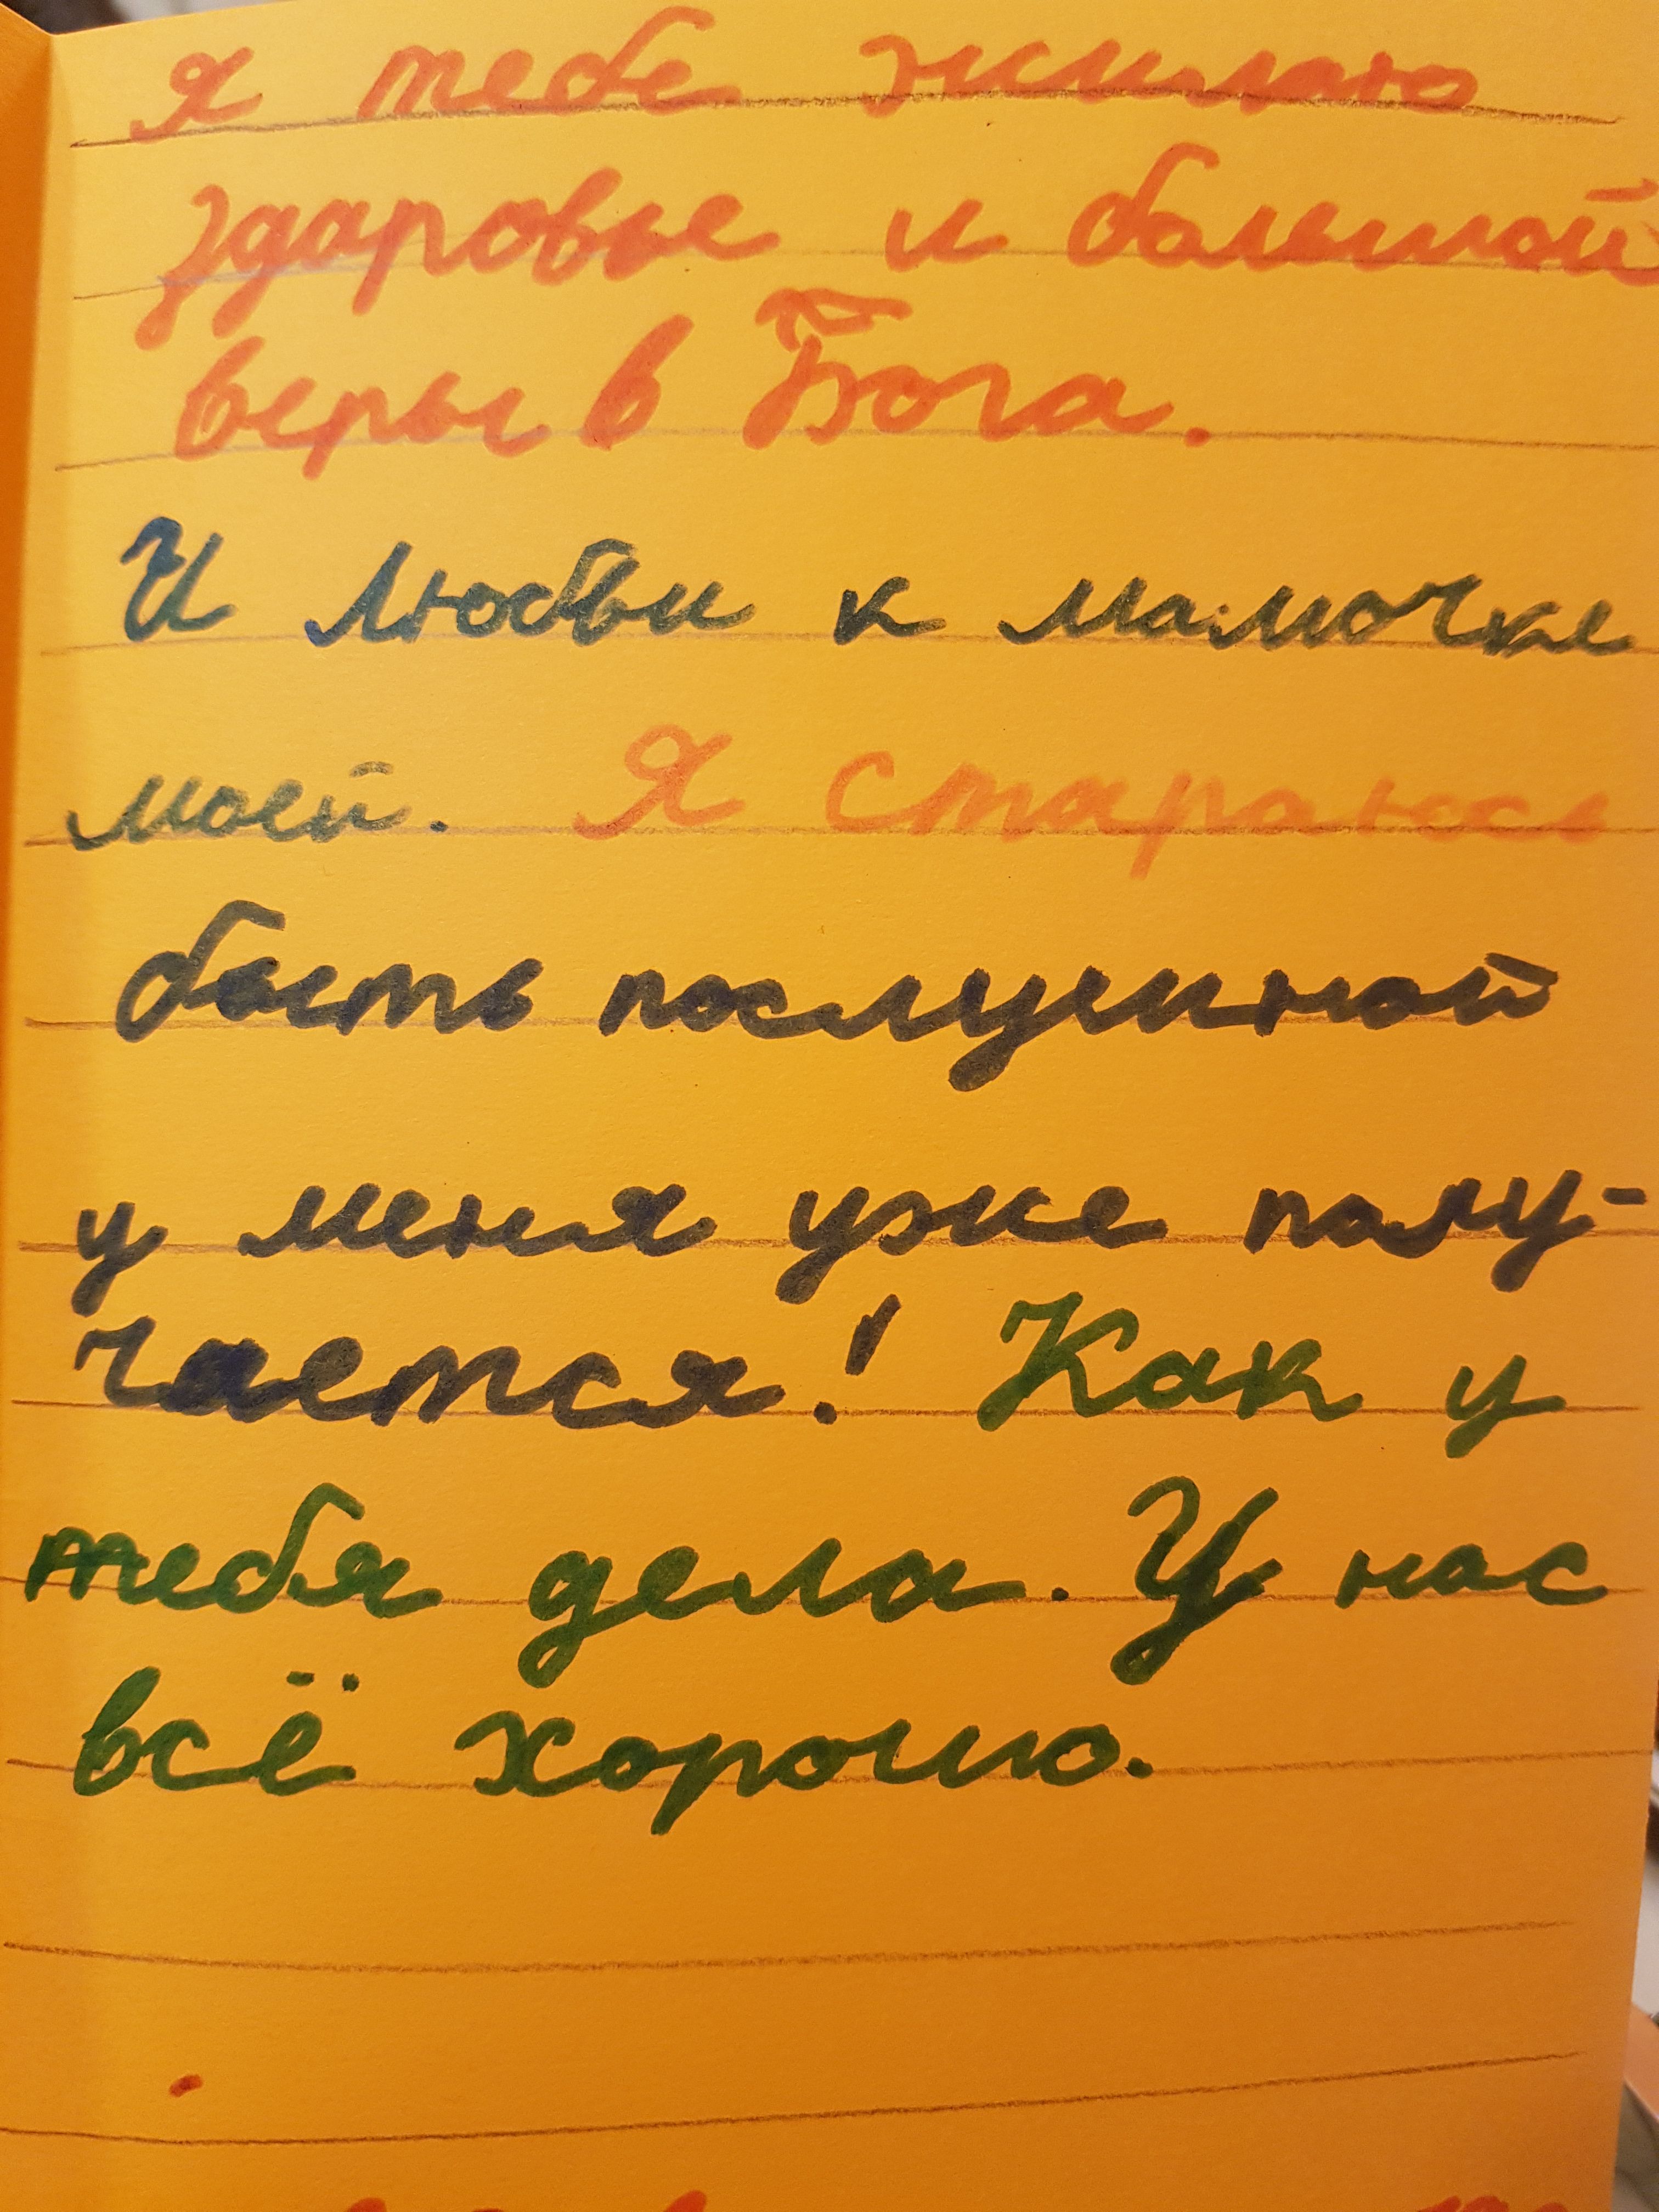 я тебе жилаю
здаровье и балшой
веры в Бога.
И любви к мамочке
моей. Я стараюсь
быть послушной
у меня уже полу-
чается! Как у
тебя дела. У нас
всё хорошо.